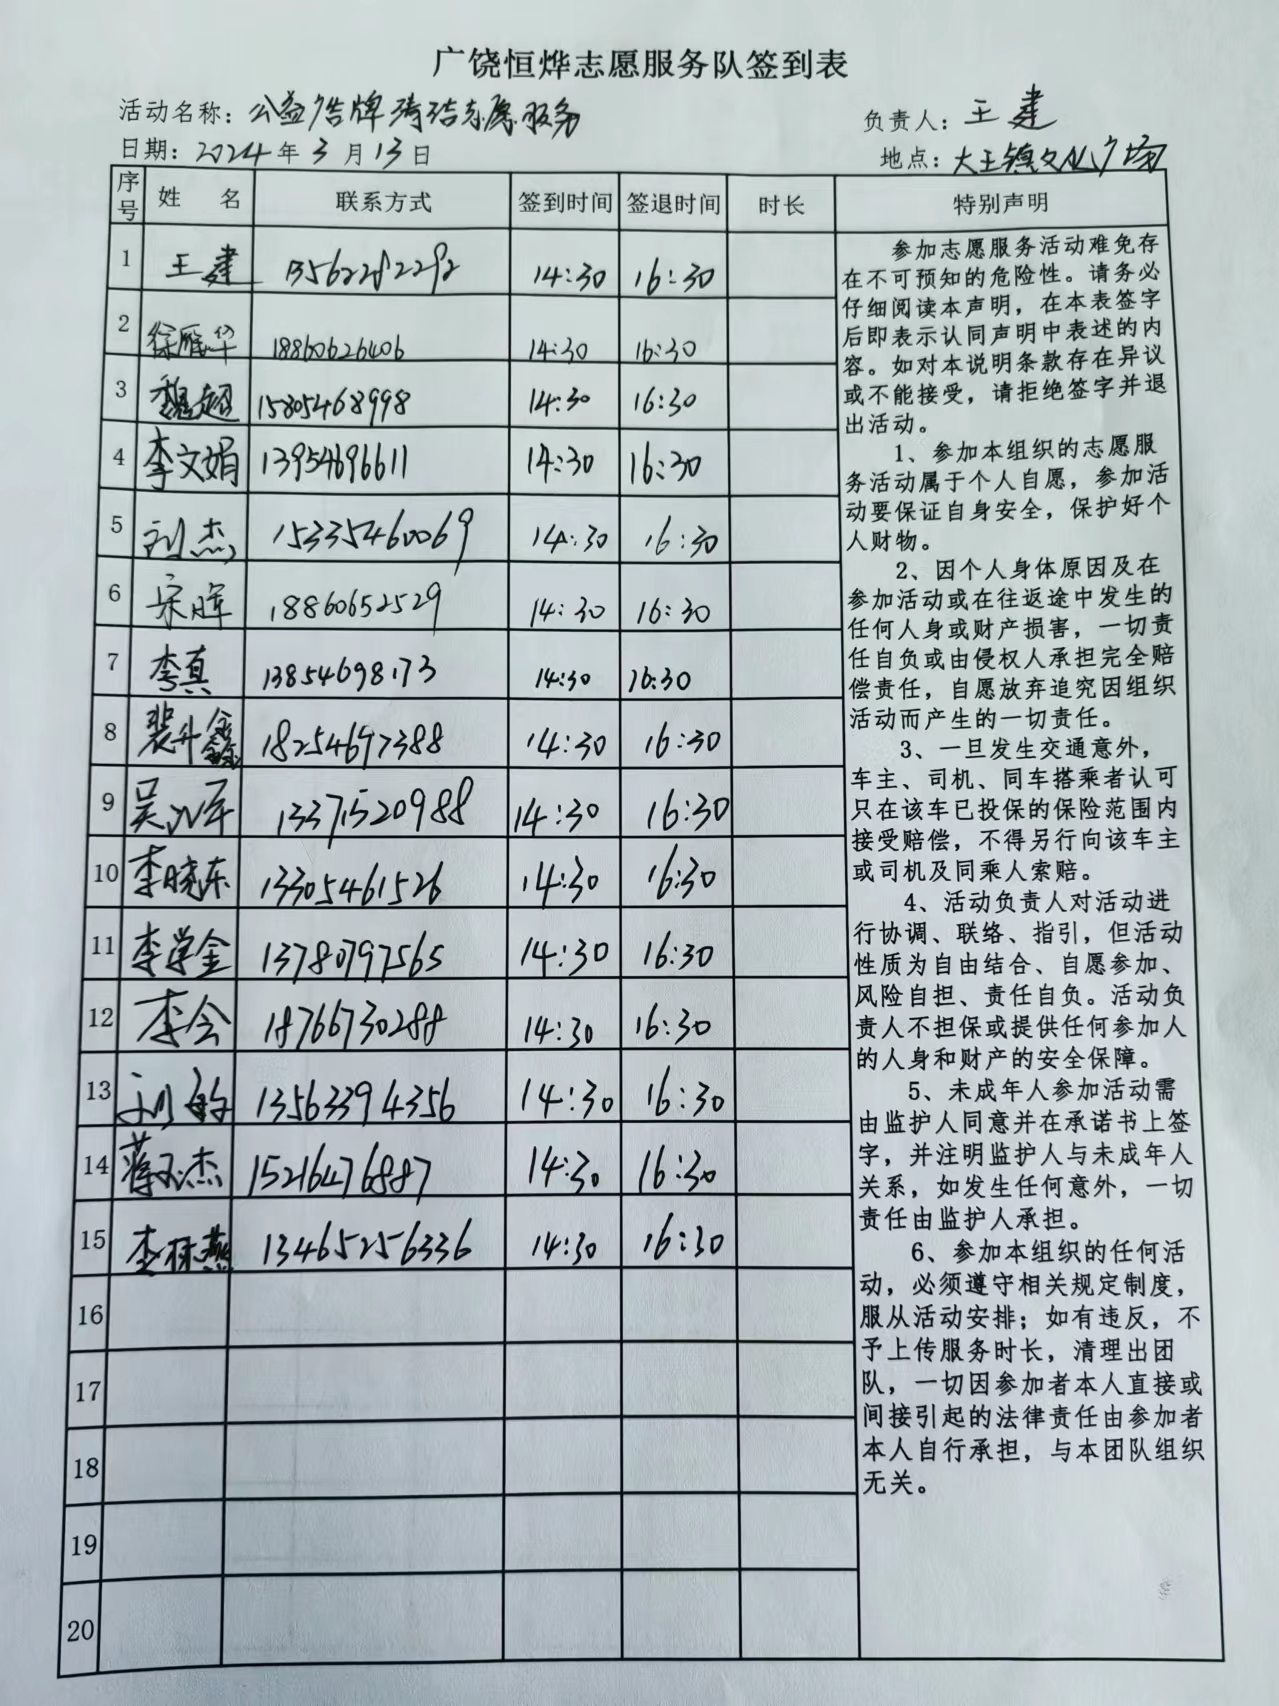 广饶恒烨志愿服务队签到表
活动名称：公益广告牌清洁志愿服务 负责人：王建
日期：2024年3月13日 地点：大王镇文化广场
序号 姓名 联系方式 签到时间 签退时间 时长 特别声明
1 王建 14:30 16:30
2 徐雁华 18860626406 14:30 16:30
3 魏超 15805468998 14:30 16:30
4 李文娟 13954696611 14:30 16:30
5 刘杰 15335460069 14:30 16:30
6 宋晖 18860652529 14:30 16:30
7 李真 13854698173 14:30 16:30
8 裴升鑫 18254697388 14:30 16:30
9 吴 军 13371520988 14:30 16:30
10 李晓东 13305461526 14:30 16:30
11 李学金 13780797565 14:30 16:30
12 李会 18766730288 14:30 16:30
13 刘 13563394356 14:30 16:30
14 蒋 杰 15216476887 14:30 16:30
15 李 燕 13465256336 14:30 16:30
16
17
18
19
20
参加志愿服务活动难免存
在不可预知的危险性。请务必
仔细阅读本声明，在本表签字
后即表示认同声明中表述的内
容。如对本说明条款存在异议
或不能接受，请拒绝签字并退
出活动。
1、参加本组织的志愿服
务活动属于个人自愿，参加活
动要保证自身安全，保护好个
人财物。
2、因个人身体原因及在
参加活动或在往返途中发生的
任何人身或财产损害，一切责
任自负或由侵权人承担完全赔
偿责任，自愿放弃追究因组织
活动而产生的一切责任。
3、一旦发生交通意外，
车主、司机、同车搭乘者认可
只在该车已投保的保险范围内
接受赔偿，不得另行向该车主
或司机及同乘人索赔。
4、活动负责人对活动进
行协调、联络、指引，但活动
性质为自由结合、自愿参加、
风险自担、责任自负。活动负
责人不担保或提供任何参加人
的人身和财产的安全保障。
5、未成年人参加活动需
由监护人同意并在承诺书上签
字，并注明监护人与未成年人
关系，如发生任何意外，一切
责任由监护人承担。
6、参加本组织的任何活
动，必须遵守相关规定制度，
服从活动安排；如有违反，不
予上传服务时长，清理出团
队，一切因参加者本人直接或
间接引起的法律责任由参加者
本人自行承担，与本团队组织
无关。